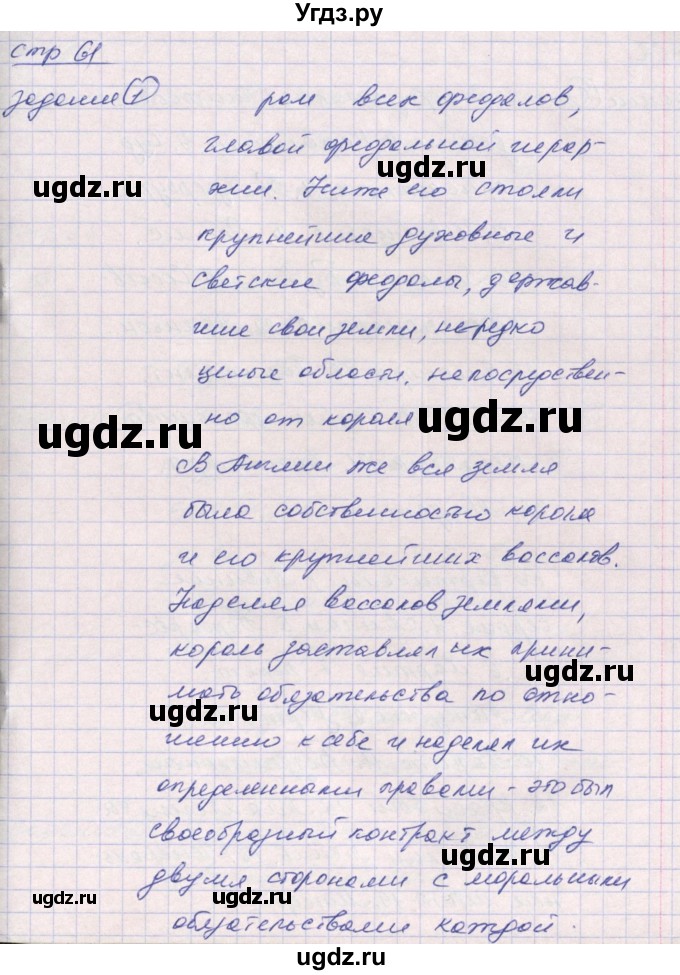 Угдз.ру
стр 61
задание 1
ром всех феодалов,
главой феодальной иерар-
хии. Ниже его стояли
ugdz.ru ugdz.ru
крупнейшие духовные и
светские феодалы, держав-
шие свои земли, нередко
ugdz.ru
целые области, непосредствен-
но от короля
ugdz.ru ugdz.ru
В Англии же вся земля
была собственностью короля
и его крупнейших вассалов.
ugdz.ru
Наделяя вассалов землями,
король заставлял их прини-
ugdz.ru
мать обязательства по отно-
ugdz.ru
шению к себе и наделял их
определенными правами - это был
своеобразный контракт между
ugdz.ru
двумя сторонами с моральными
ugdz.ru ugdz.ru
обязательствами каждой.
ugdz.ru